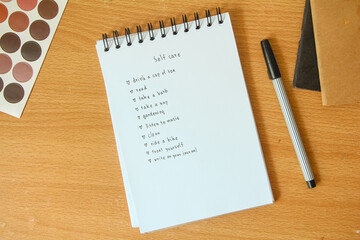 Self care
drink a cup of tea
read
take a bath
take a nap
gardening
listen to music
clean
ride a bike
treat yourself
write on your journal